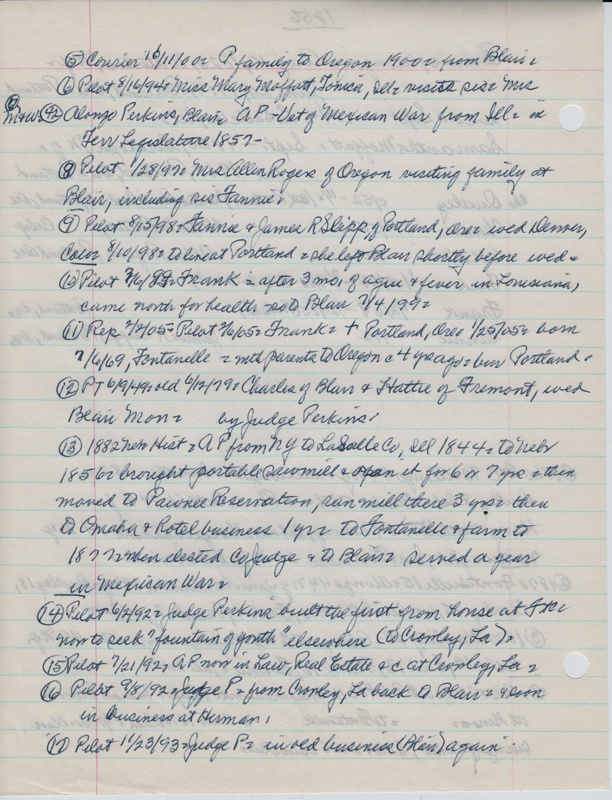 ⑤ Courier 10/11/00 = P family to Oregon 1900 = from Blair.
⑥ Pilot 8/16/94 = Miss Mary Moffatt, Tonica, Ill = visits sis = Mrs
Alonzo Perkins, Blair = A.P. - Vet of Mexican War from Ill = in
Terr Legislature 1857 -
⑧ Pilot 1/28/97 = Mrs Allen Rogers of Oregon visiting family at
Blair, including sis Fannie.
⑨ Pilot 8/15/98 = Fannie & James R Slipp of Portland, Ore = wed Denver,
Colo 8/10/98 = to live at Portland = she left Blair shortly before wed =
⑩ Pilot 7/6/99 = Frank = after 3 mos of ague & fever in Louisiana,
came north for health = to Blair 7/4/99 =
⑪ Rep 2/2/05 = Pilot = Frank = + Portland, Oreg 1/25/05 = born
7/6/69, Fontanelle = with parents to Oregon c 4 yrs ago = bur Portland.
⑫ PT 6/9/49 = old 6/12/79 = Charles of Blair & Hattie of Fremont, wed
Blair Mon = by Judge Perkins.
⑬ 1882 Neb Hist = A P from NY to LaSalle Co, Ill 1844 = to Nebr
1856 = brought portable sawmill & open it for 6 or 7 yrs = then
moved to Pawnee Reservation, ran mill there 3 yrs = then
to Omaha & Hotel business 1 yr = to Fontanelle & farm to
1877 = when elected Co Judge & to Blair = served a year
in Mexican War =
⑭ Pilot 6/2/92 = Judge Perkins "built the first from house at
now to seek "fountain of youth" elsewhere (to Crowley, La) =
⑮ Pilot 7/21/92 = A P now in Law, Real Estate & c at Crowley, La =
⑯ Pilot 9/8/92 = Judge P = from Crowley, La back to Blair = & soon
in business at Herman.
⑰ Pilot 11/23/93 = Judge P = in old business (Blair) again.